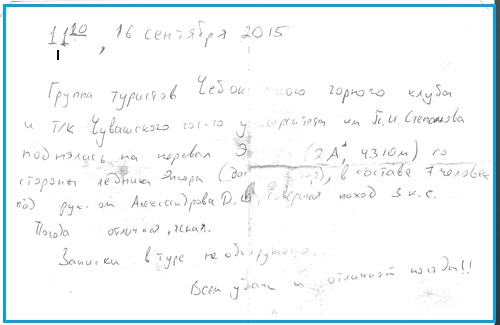 11²⁰, 16 сентября 2015
Группа туристов горного клуба
и т/к Чувашского им. Степанова
поднялась на перевал Э (2А*, 4310м) со
стороны ледника в составе 7 человек
под рук-ом Александрова совершая поход 3 к.с.
Погода отличная, ясная.
Записки в туре не обнаружено.
Всем удачи и отличной погоды!!